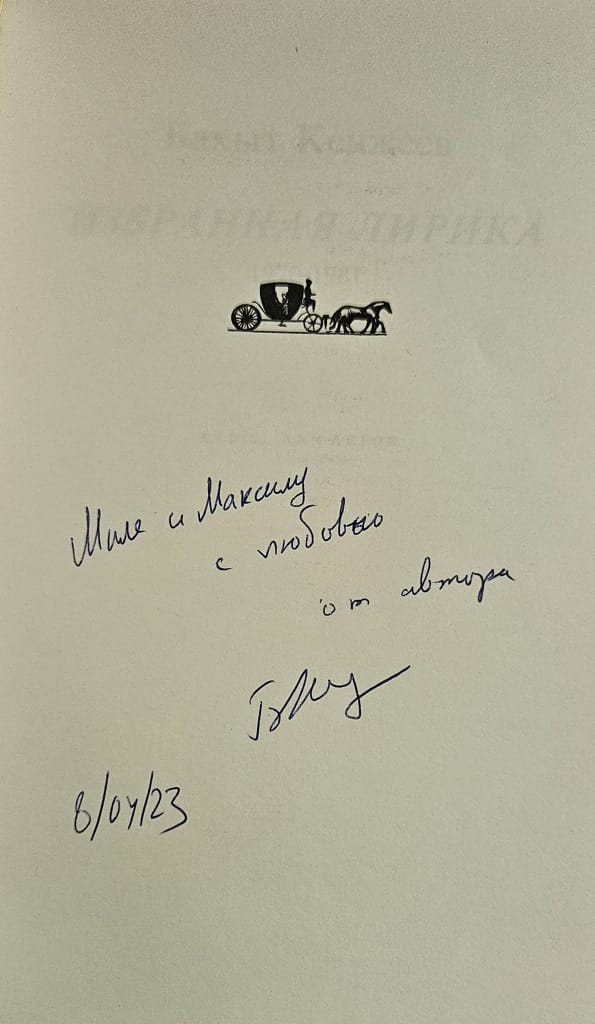 Бахыт Кенжеев
ИЗБРАННАЯ ЛИРИКА
1970-1981
Миле и Максиму
с любовью
от автора
8/04/23